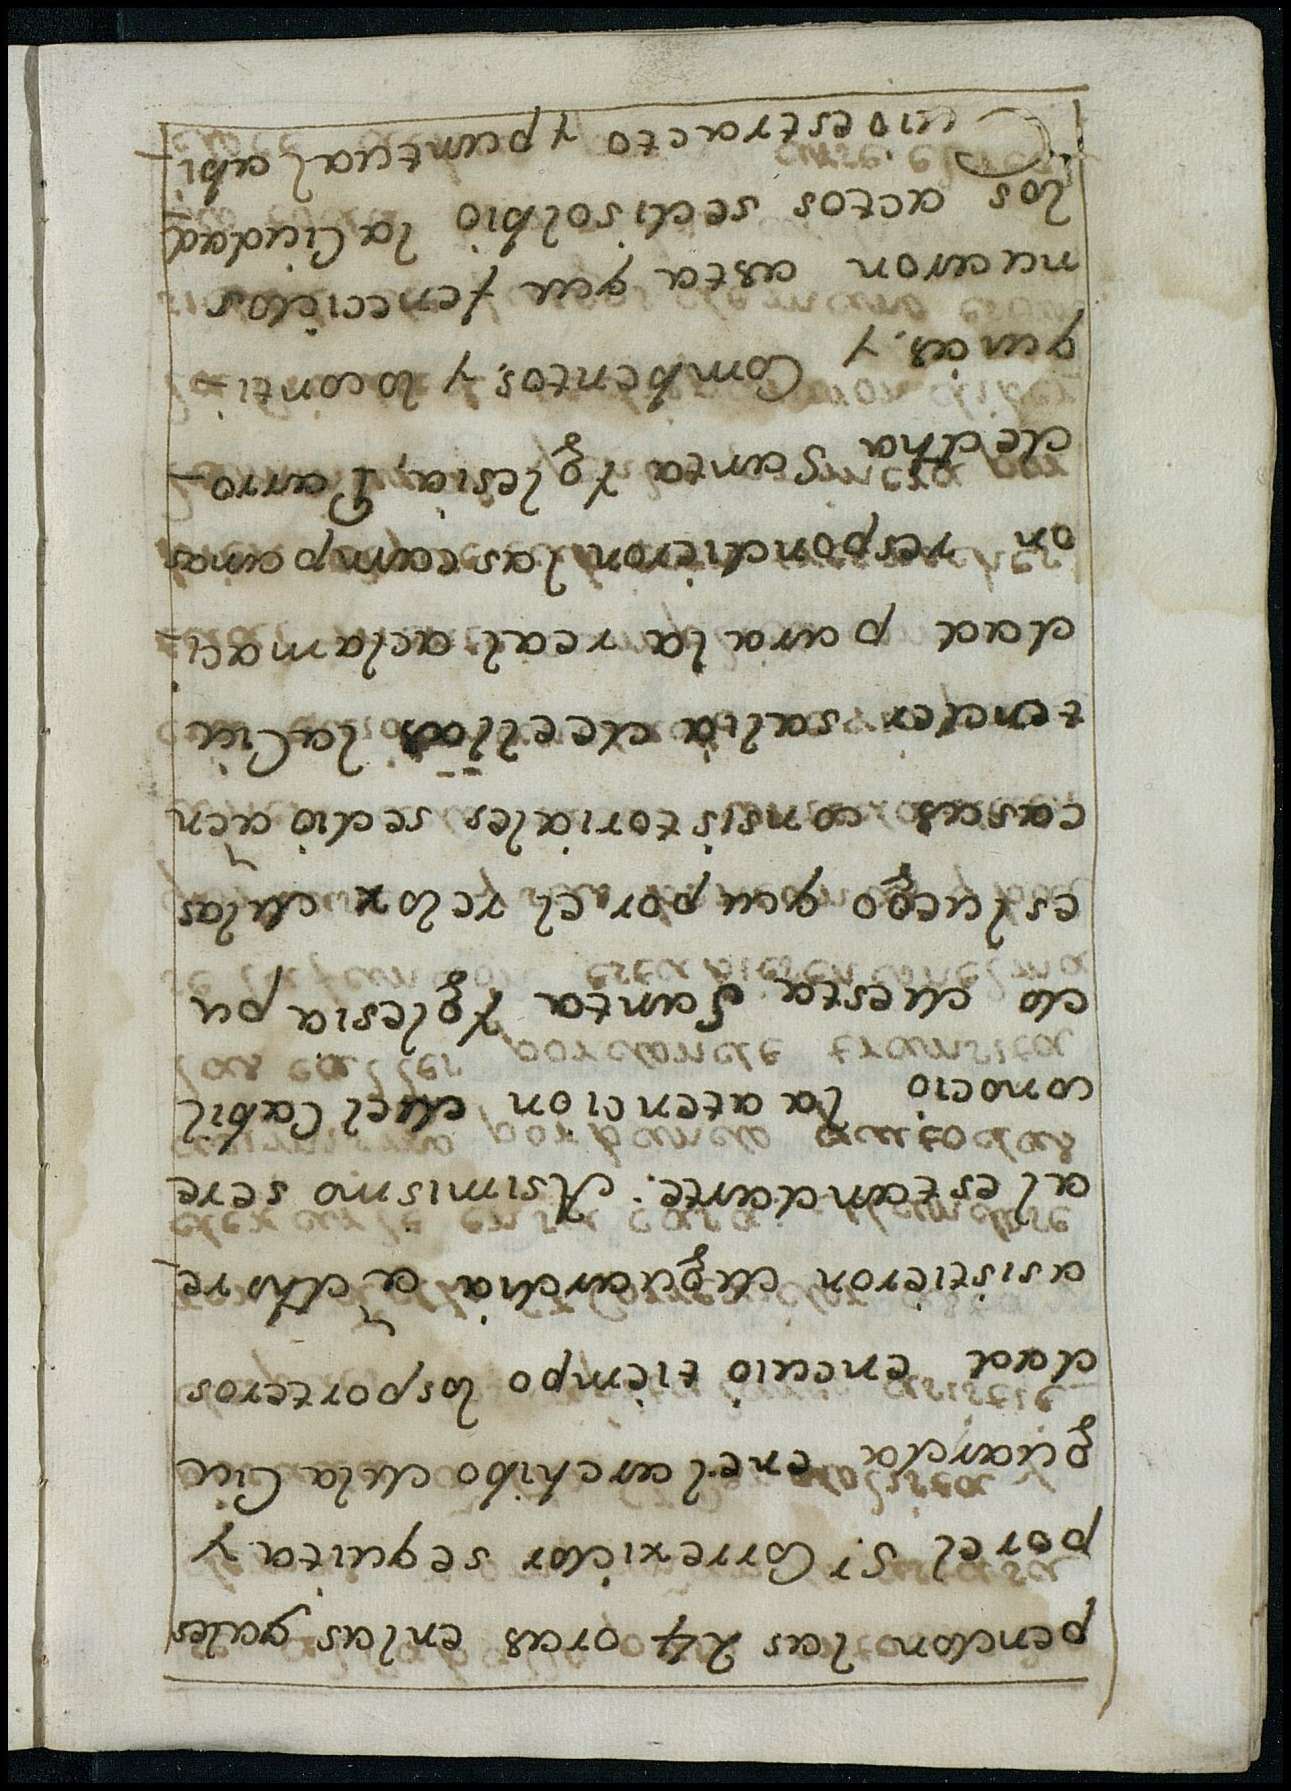 pendon las 24 oras enlas quales
por el Sr. Correxidor sequita y
guarda enel archibo dela Ciu
dad encuio tiempo losporteros
asistieron deguardia a dho Re-
al estandarte. Asimismo sere
conocio la atencion del Cabil
do desta Santa Yglesia pu
esluego que por el relox delas
casas consistoriales sedio aen
tender salia deellas la Ciu
dad para la real aclamaci-
on respondieron las campanas
dedha Santa Yglesia, Parro-
quias, y Combentos, y loconti-
nuaron asta que fenecidos
los actos sedisolbio la Ciudad
Cuio estracto y puntual abi-